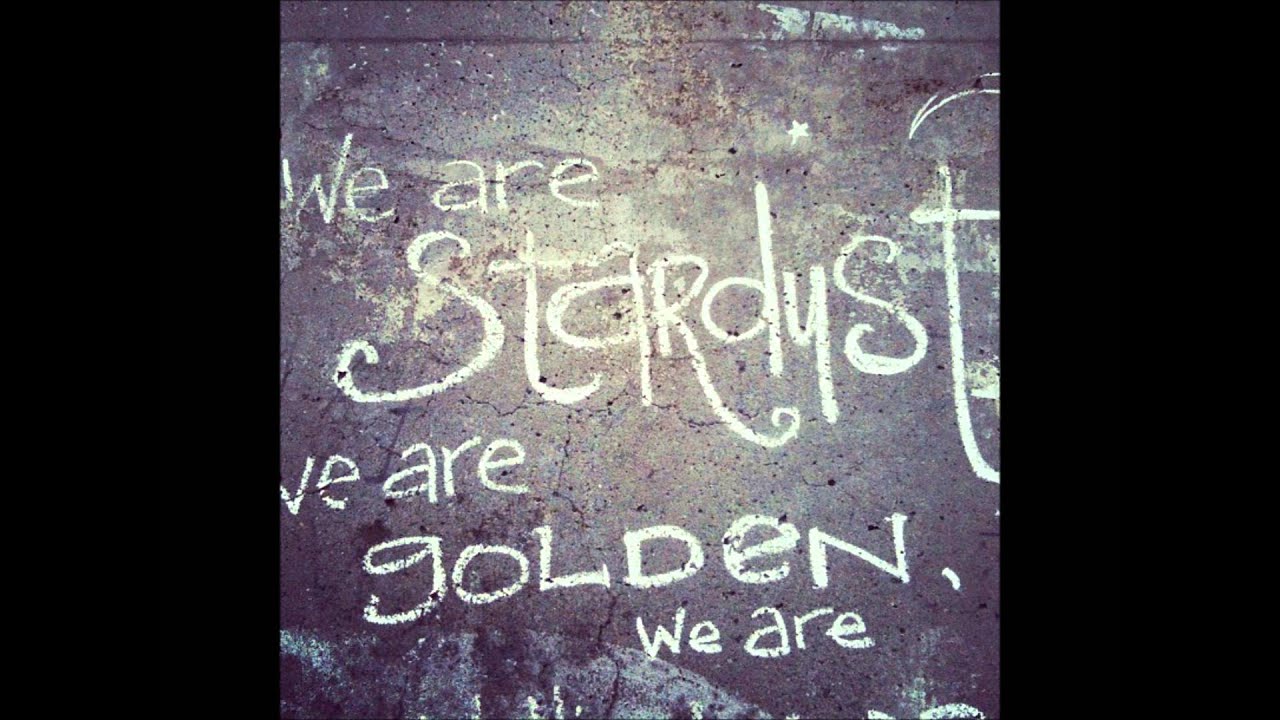 We are
Stardust
we are
golden,
we are